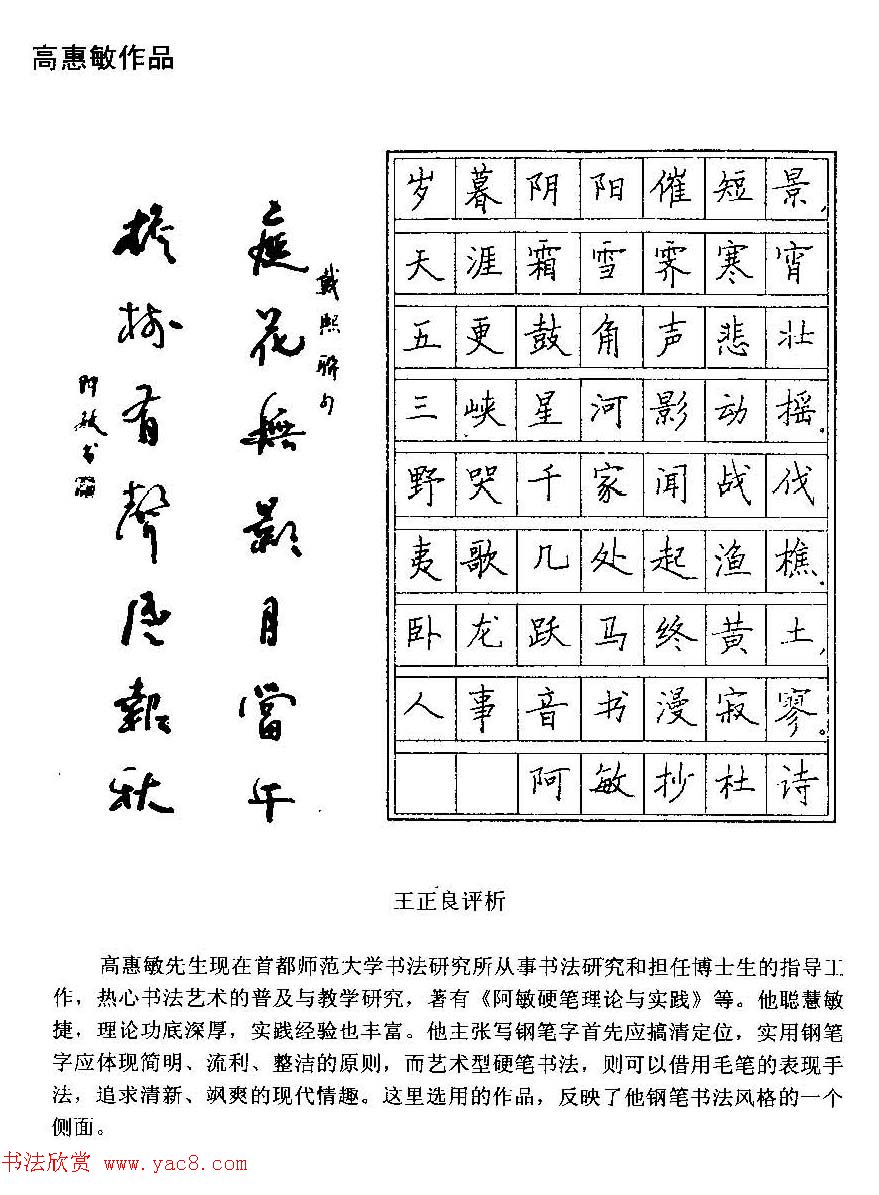 高惠敏作品
庭花无影月當午
戴熙联句
檐树有聲风報秋
阿敏书
岁暮阴阳催短景,
天涯霜雪霁寒宵
五更鼓角声悲壮
三峡星河影动摇。
野哭千家闻战伐
夷歌几处起渔樵。
卧龙跃马终黄土,
人事音书漫寂寥。
阿敏抄杜诗
王正良评析
高惠敏先生现在首都师范大学书法研究所从事书法研究和担任博士生的指导工
作，热心书法艺术的普及与教学研究，著有《阿敏硬笔理论与实践》等。他聪慧敏
捷，理论功底深厚，实践经验也丰富。他主张写钢笔字首先应搞清定位，实用钢笔
字应体现简明、流利、整洁的原则，而艺术型硬笔书法，则可以借用毛笔的表现手
法，追求清新、飒爽的现代情趣。这里选用的作品，反映了他钢笔书法风格的一个
侧面。
书法欣赏 www.yac8.com